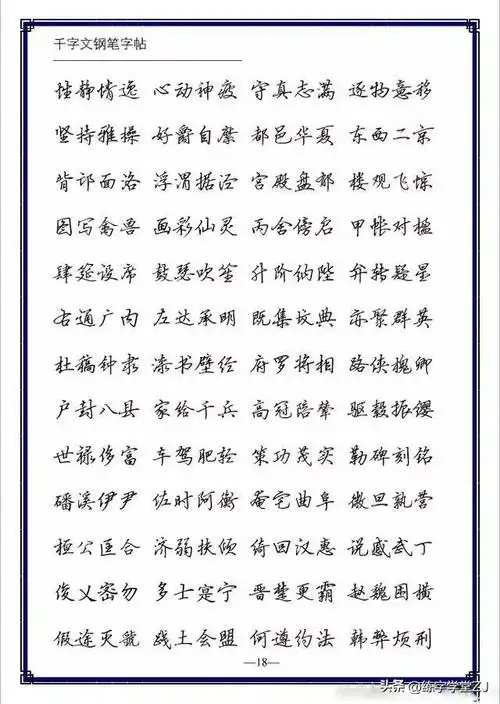 千字文钢笔字帖
性静情逸 心动神疲 守真志满 逐物意移
坚持雅操 好爵自縻 都邑华夏 东西二京
背邙面洛 浮渭据泾 宫殿盘郁 楼观飞惊
图写禽兽 画彩仙灵 丙舍傍启 甲帐对楹
肆筵设席 鼓瑟吹笙 升阶纳陛 弁转疑星
右通广内 左达承明 既集坟典 亦聚群英
杜稿钟隶 漆书壁经 府罗将相 路侠槐卿
户封八县 家给千兵 高冠陪辇 驱毂振缨
世禄侈富 车驾肥轻 策功茂实 勒碑刻铭
磻溪伊尹 佐时阿衡 奄宅曲阜 微旦孰营
桓公匡合 济弱扶倾 绮回汉惠 说感武丁
俊乂密勿 多士寔宁 晋楚更霸 赵魏困横
假途灭虢 践土会盟 何遵约法 韩弊烦刑
—18—
头条 @练字学堂ZJ